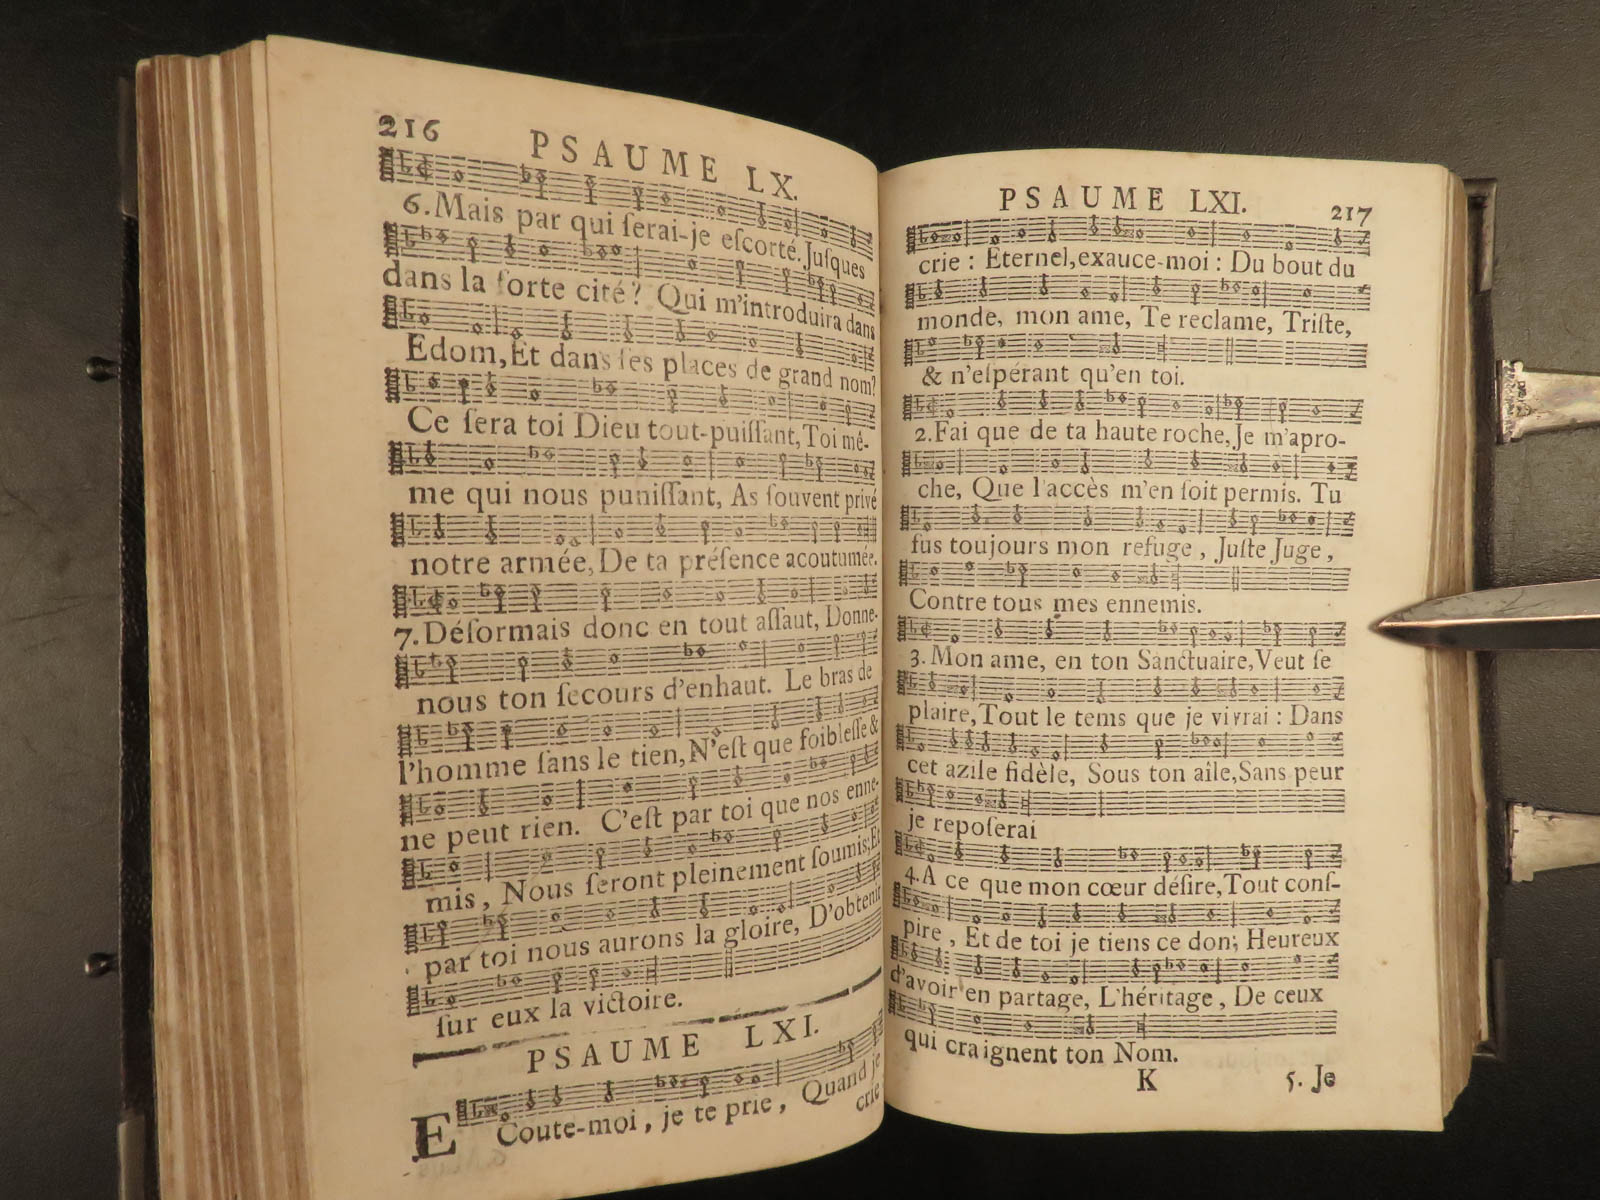 216
PSAUME LX.
6. Mais par qui ſerai-je eſcorté. Juſques
dans la forte cité? Qui m'introduira dans
Edom, Et dans ſes places de grand nom?
Ce ſera toi Dieu tout-puiſſant, Toi mê-
me qui nous puniſſant, As ſouvent privé
notre armée, De ta préſence acoutumée.
7. Déſormais donc en tout aſſaut, Donne-
nous ton ſecours d'enhaut. Le bras de
l'homme ſans le tien, N'eſt que foibleſſe &
ne peut rien. C'eſt par toi que nos enne-
mis, Nous ſeront pleinement ſoumis; Et
par toi nous aurons la gloire, D'obtenir
ſur eux la victoire.
PSAUME LXI.
ECoute-moi, je te prie, Quand je
crie
PSAUME LXI.
217
crie : Eternel, exauce-moi : Du bout du
monde, mon ame, Te reclame, Triſte,
& n'eſpérant qu'en toi.
2. Fai que de ta haute roche, Je m'apro-
che, Que l'accès m'en ſoit permis. Tu
fus toujours mon refuge, Juſte Juge,
Contre tous mes ennemis.
3. Mon ame, en ton Sanctuaire, Veut ſe
plaire, Tout le tems que je vivrai : Dans
cet azile fidèle, Sous ton aîle, Sans peur
je repoſerai
4. A ce que mon cœur déſire, Tout conſ-
pire, Et de toi je tiens ce don; Heureux
d'avoir en partage, L'héritage, De ceux
qui craignent ton Nom.
K
5. Je